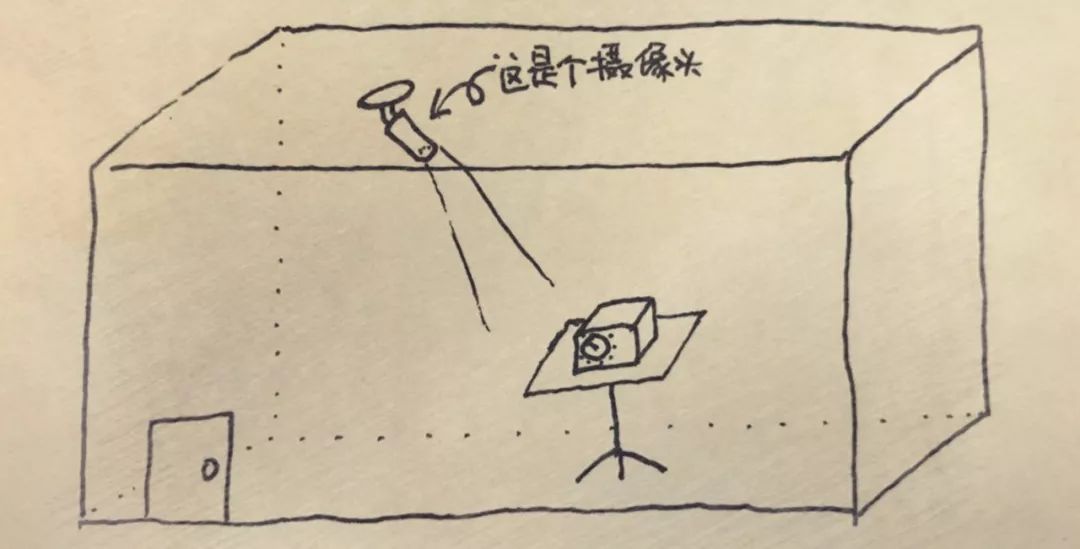 这是个摄像头